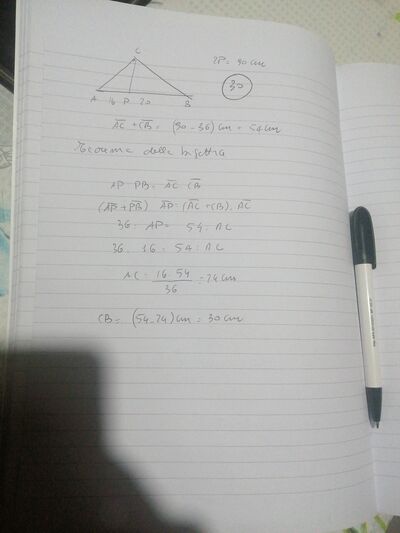 C
2P = 90 cm
30
A 16 P 20 B
AC + CB = (90 - 36) cm = 54 cm
Teorema della bisettrice
AP : PB = AC : CB
(AP + PB) : AP = (AC + CB) : AC
36 : AP = 54 : AC
36 : 16 = 54 : AC
AC = 16 · 54 / 36 = 24 cm
CB = (54 - 24) cm = 30 cm